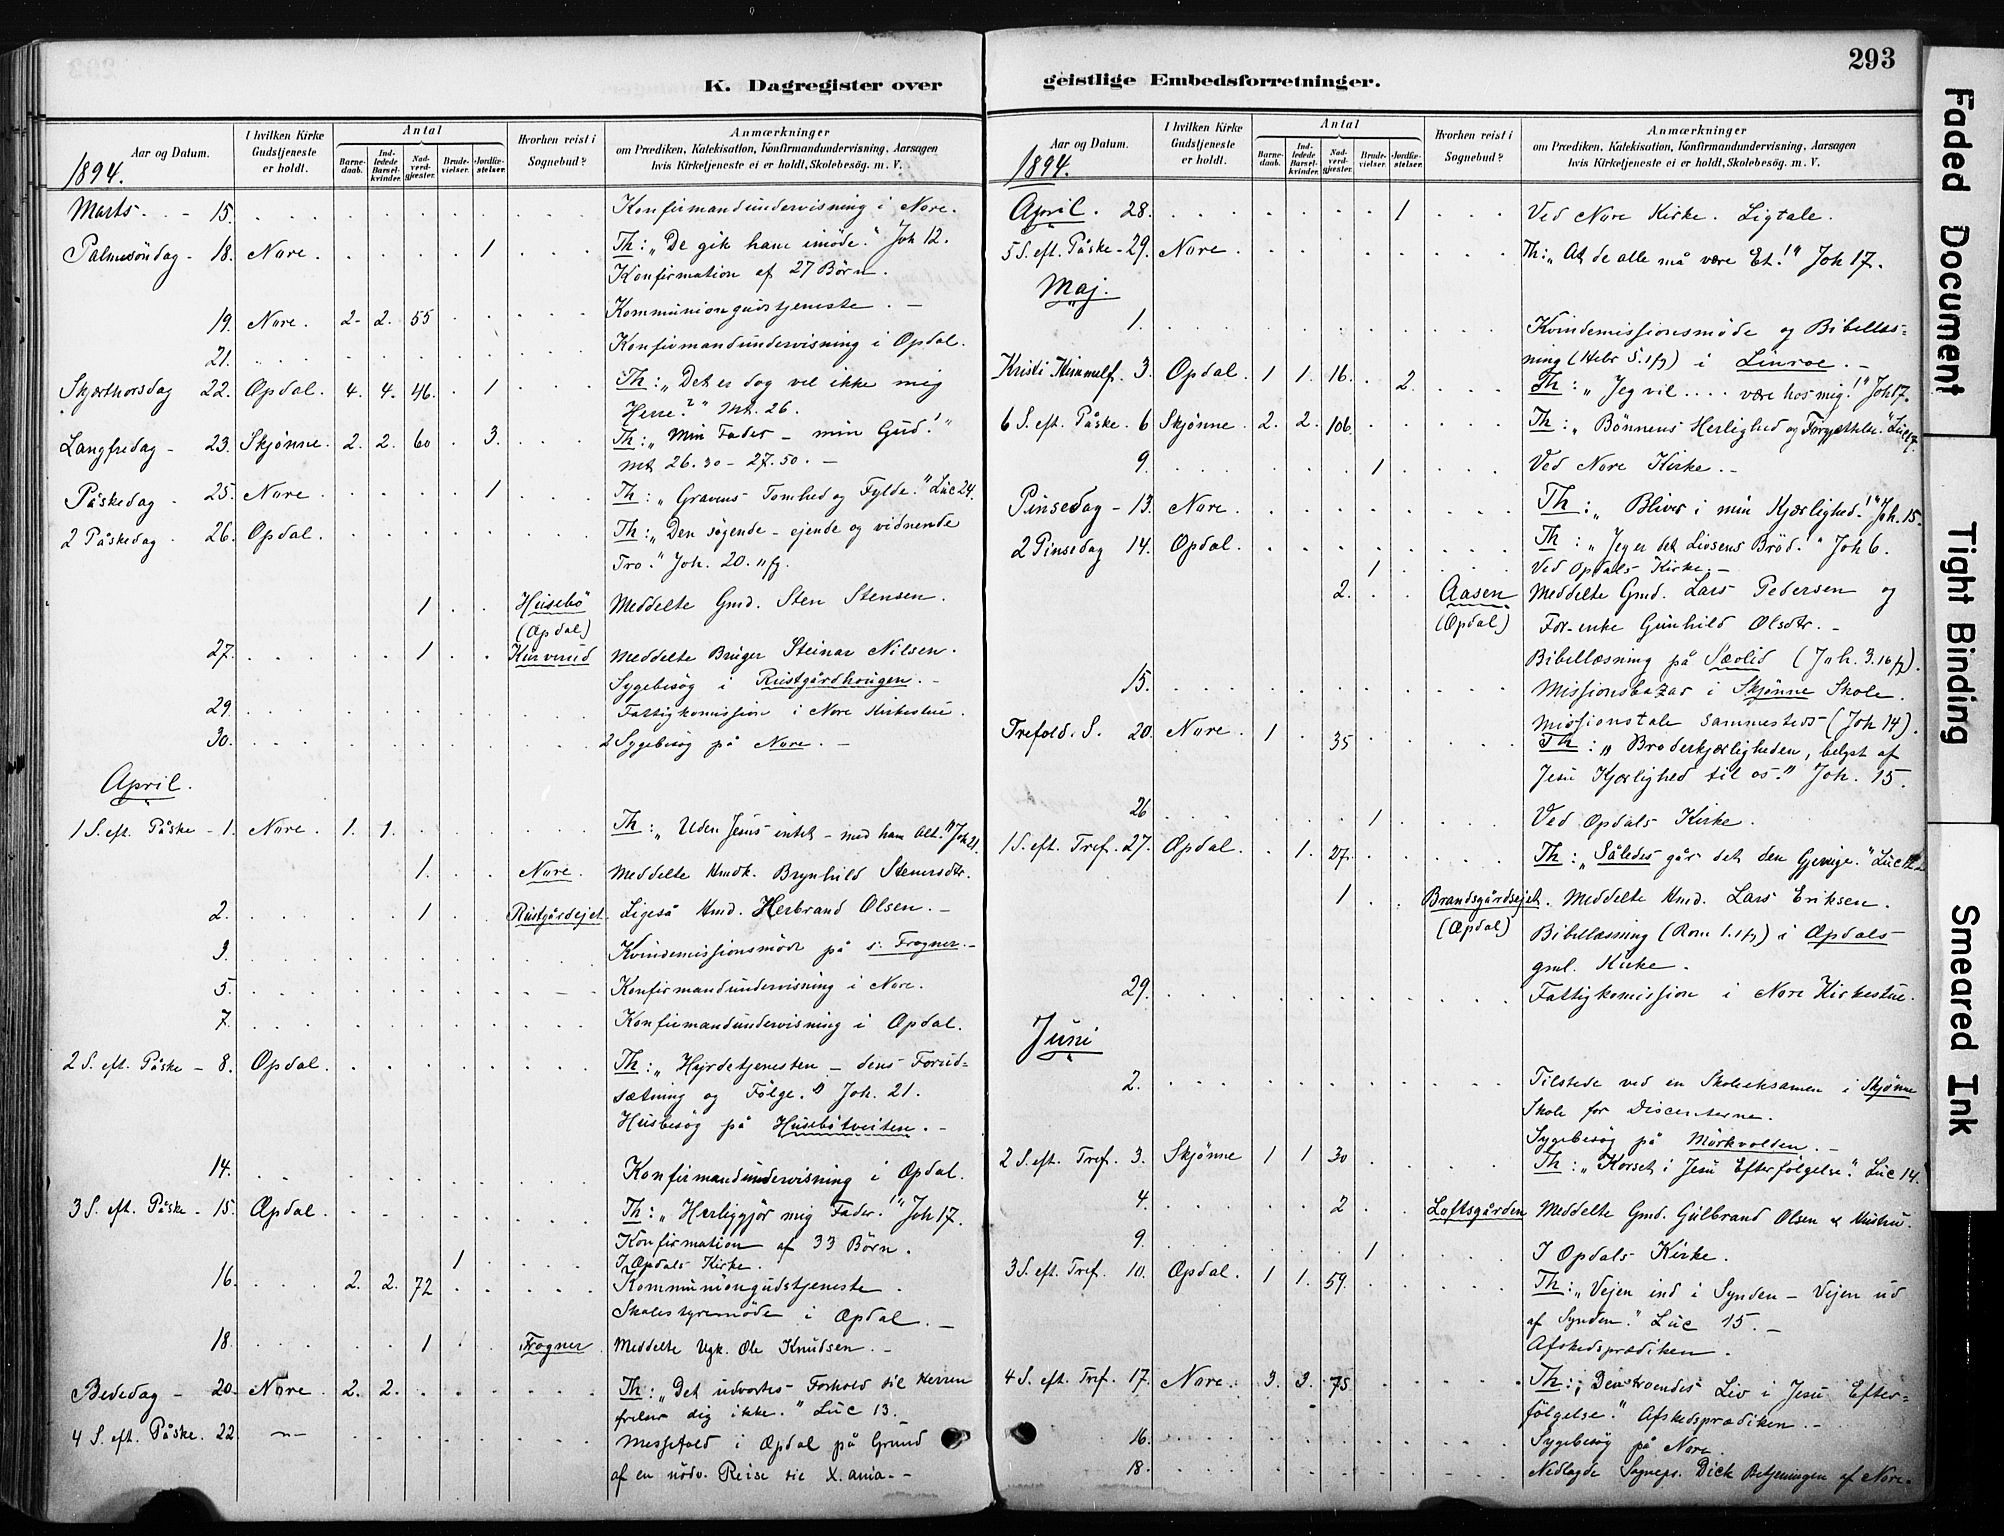 293
K. Dagregister over
geistlige Embedsforretninger.
Aar og Datum.
I hvilken Kirke Gudstjeneste er holdt.
Antal
Barne-daab.
Ind-ledede Barsel-kvinder.
Nad-verd-gjæster.
Brude-vielser.
Jordfæ-stelser.
Hvorhen reist i Sognebud?
Anmærkninger
om Prædiken, Katekisation, Konfirmandundervisning, Aarsagen
hvis Kirketjeneste ei er holdt, Skolebesøg. m. V.
1894.
Marts. - 15. Konfirmandundervisning i Nore.
Palmesöndag - 18. Nore. 1 Th: „De gik ham imöde." Joh 12.
Konfirmation af 27 Börn.
19. Nore. 2. 2. 55 Kommuniongudstjeneste. -
21. Konfirmandundervisning i Opdal.
Skjærthorsdag 22. Opdal. 4. 4. 46. 1 Th: „Det er dog vel ikke mig
Herre?" Mt. 26.
Langfredag - 23. Skjönne. 2. 2. 60 3. Th: „Min Fader - min Gud!"
Mt 26.30 - 27.50. -
Påskedag - 25. Nore 1 Th: „Gravens Tomhed og Fylde." Luc 24.
2 Påskedag 26. Opdal. Th: „Den sögende - ejende og vidnende
Tro." Joh. 20. 11 fg.
1 Husebö Meddelte Gmd. Sten Stensen.
(Opdal)
27. 1 Kurverud Meddelte Bruger Steinar Nilsen.
Sygebesög i Rustgårdhougen. -
29. Fattigkomission i Nore Kirkestue.
30. 2 Sygebesög på Nore. -
April.
1 S. eft. Påske - 1. Nore. 1. 1. Th: „Uden Jesus intet - med ham Alt." Joh 21.
1. Nore. Meddelte Hmdk. Brynhild Stenersdtr.
2. 1 Rustgårdejet. Ligeså Hmd. Herbrand Olsen. -
3. Kvindemissionsmöde på s. Frogner. -
5. Konfirmandundervisning i Nore.
7. Konfirmandundervisning i Opdal.
2 S. eft. Påske - 8. Opdal. Th: „Hyrdetjenesten - dens Forud-
sætning og Fölge." Joh. 21.
Husbesög på Husebötveiten. -
14. Konfirmandundervisning i Opdal.
3 S. eft. Påske - 15. Opdal. Th: „Herliggjör mig Fader!" Joh 17.
Konfirmation af 33 Börn.
1 I Opdals Kirke.
16. 2. 2. 72 Kommuniongudstjeneste
Skolestyremöde i Opdal. -
18. 1 Frogner Meddelte Ugk. Ole Knudsen. -
Bededag - 20. Nore. 2. 2. Th: „Det udvortes Forhold til Herren
frelser dig ikke." Luc 13.
4 S. eft. Påske. 22 -"- Messefald i Opdal på Grund
af en nödv. Reise til X.ania. -
Aar og Datum.
I hvilken Kirke Gudstjeneste er holdt.
Antal
Barne-daab.
Ind-ledede Barsel-kvinder.
Nad-verd-gjæster.
Brude-vielser.
Jordfæ-stelser.
Hvorhen reist i Sognebud?
Anmærkninger
om Prædiken, Katekisation, Konfirmandundervisning, Aarsagen
hvis Kirketjeneste ei er holdt, Skolebesøg. m. V.
1894.
April. 28. 1 Ved Nore Kirke. Ligtale.
5 S. eft. Påske - 29. Nore Th: „At de alle må være Et!" Joh 17.
Maj.
1. Kvindemissionsmöde og Bibellæs-
ning (Hebr 5. 1 fg) i Linroe. -
Kristi Himmelf. 3. Opdal. 1 1. 16. 2. Th: „Jeg vil .... være hos mig!" Joh 17.
6 S. eft. Påske. 6 Skjönne. 2. 2. 106. Th: „Bönnens Herlighed og Forjættelse." Luc 17.
9. 1 Ved Nore Kirke. -
Pinsedag - 13. Nore. Th: „Bliver i min Kjærlighed!" Joh. 15.
2 Pinsedag 14. Opdal. Th: „Jeg er det Livsens Bröd." Joh 6.
1 Ved Opdals Kirke. -
2. Aasen Meddelte Gmd. Lars Pedersen og
(Opdal) For-enke Gunhild Olsdtr. -
Bibellæsning på Sævlid (Joh. 3. 16 fg).
15. Missionsbazar i Skjönne Skole.
Missionstale sammesteds (Joh 14).
Trefold. S. 20. Nore. 1 35 Th: „Broderkjærligheden, belyst af
Jesu Kjærlighed til os." Joh. 15.
26 1 Ved Opdals Kirke.
1 S. eft. Tref. 27. Opdal. 1. 27. Th: „Således går det den Gjerrige." Luc 12
1 Brandsgårdsejet. Meddelte Hmd. Lars Eriksen.
(Opdal) Bibellæsning (Rom 1. 1 fg) i Opdals
gml. Kirke.
29. Fattigkomission i Nore Kirkestue.
Juni
2. Tilstede ved en Skoleeksamen i Skjönne
Skole for Discenterne.
Sygebesög på Mörkvolden. -
2 S. eft. Tref. 3. Skjönne 1 1 30 Th: „Korset i Jesu Efterfölgelse." Luc 14.
4. 2 Loftsgården Meddelte Gmd. Gulbrand Olsen & Hustru.
9. 1 I Opdals Kirke.
3 S. eft. Tref. 10. Opdal. 1 1. 59. Th: „Vejen ind i Synden - Vejen ud
af Synden." Luc 15. -
Afskedsprædiken.
4 S. eft. Tref. 17. Nore. 3. 3. 75. Th: „Den troendes Liv i Jesu Efter-
fölgelse." Afskedsprædiken. -
16. Sygebesög på Nore.
18. Nedlagde Sogneps. Dick Betjeningen af Nore.
Faded Document
Tight Binding
Smeared Ink